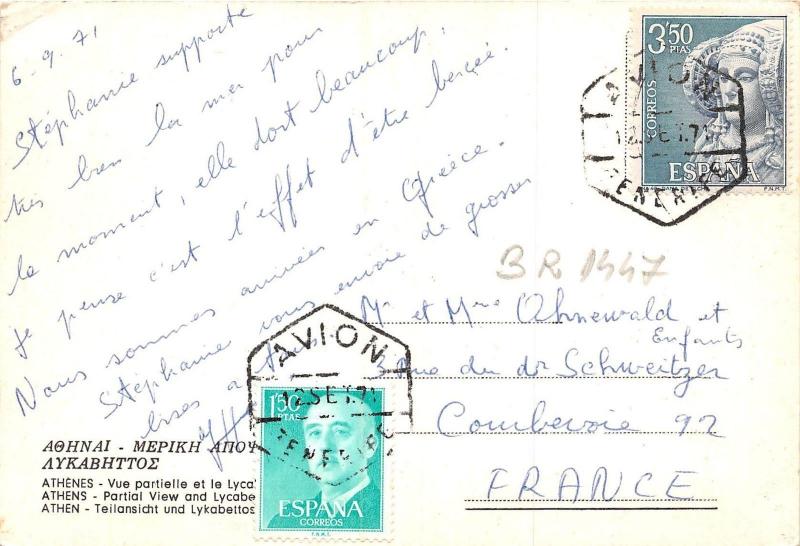 6-9.71
Stéphanie supporte
très bien la mer pour
le moment, elle dort beaucoup,
je pense c'est l'effet d'être bercée.
Nous sommes arrivées en Grèce.
Stéphanie vous envoie de grosses
bises a tous.
3'50
PTAS
CORREOS
ESPAÑA
F.N.M.T.
AVION
12SET.71
TENERIFE
BR 1447
Mr et Mme Ohnewald et
Enfants
rue du dr Schweitzer
Combevoie 92
FRANCE
AVION
12SET.71
TENERIFE
1'50
PTAS
ESPAÑA
CORREOS
F.N.M.T.
ΑΘΗΝΑΙ - ΜΕΡΙΚΗ ΑΠΟΨ
ΛΥΚΑΒΗΤΤΟΣ
ATHÈNES - Vue partielle et le Lyca
ATHENS - Partial View and Lycabe
ATHEN - Teilansicht und Lykabettos